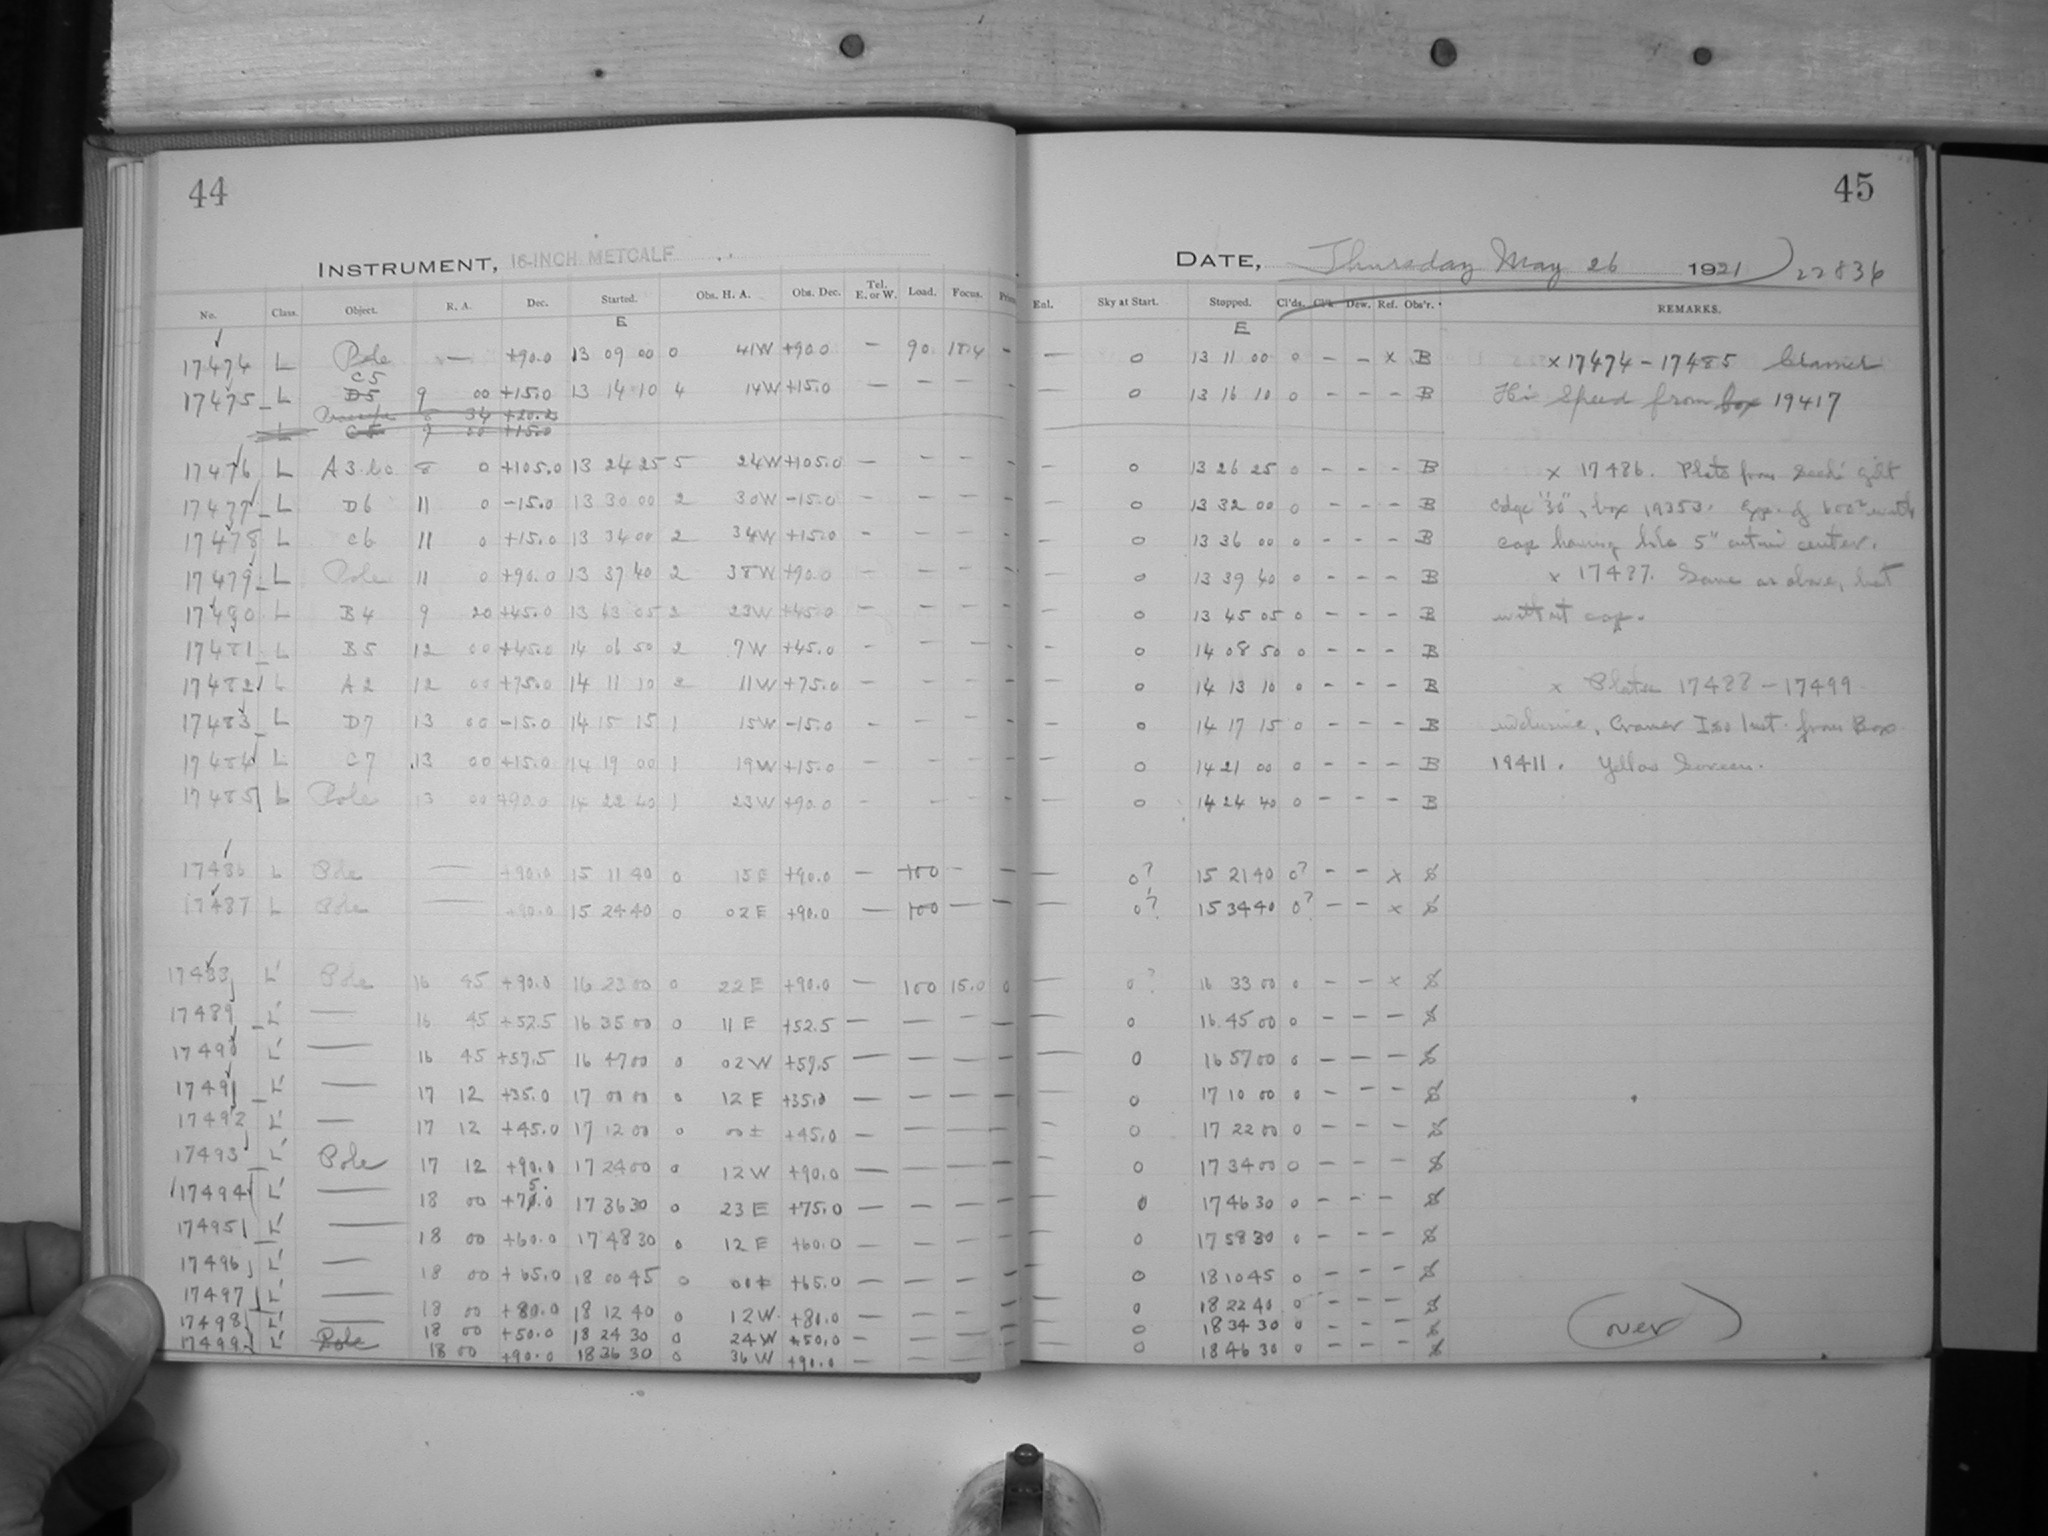 44
INSTRUMENT, 16-INCH METCALF
No. Class. Object. R. A. Dec. Started. Obs. H. A. Obs. Dec. Tel. E. or W. Load. Focus.
E
17474 L Pole — +90.0 13 09 00 0 41W +90.0 — 90 18.4 -
C5
17475 L D5 9 00 +15.0 13 14 10 4 14W +15.0 — — — -
8 34 +20.2
L C5 9 00 +15.0
17476 L A3 bo 8 0 +105.0 13 24 25 5 24W +105.0 — — — -
17477 L D6 11 0 -15.0 13 30 00 2 30W -15.0 - — — -
17478 L C6 11 0 +15.0 13 34 00 2 34W +15.0 - — — -
17479 L Pole 11 0 +90.0 13 37 40 2 38W +90.0 — — — -
17480 L B4 9 20 +45.0 13 43 05 2 23W +45.0 — — — -
17481 L B5 12 00 +45.0 14 06 50 2 7W +45.0 - — - -
17482 L A2 12 00 +75.0 14 11 10 2 11W +75.0 — — — -
17483 L D7 13 00 -15.0 14 15 15 1 15W -15.0 - — — -
17484 L C7 13 00 +15.0 14 19 00 1 19W +15.0 - — — -
17485 L Pole 13 00 +90.0 14 22 40 1 23W +90.0 - — — -
17486 L Pole — +90.0 15 11 40 0 15 E +90.0 — 100 — -
17487 L Pole — +90.0 15 24 40 0 02 E +90.0 — 100 — —
17488 L' Pole 16 45 +90.0 16 23 00 0 22 E +90.0 — 100 15.0 0
17489 L' — 16 45 +52.5 16 35 00 0 11 E +52.5 — — — —
17490 L' — 16 45 +57.5 16 47 00 0 02 W +57.5 — — — —
17491 L' — 17 12 +35.0 17 00 00 0 12 E +35.0 — — — —
17492 L' — 17 12 +45.0 17 12 00 0 00 ± +45.0 — — — —
17493 L' Pole 17 12 +90.0 17 24 00 0 12 W +90.0 — — — —
17494 L' — 18 00 +75.0 17 36 30 0 23 E +75.0 — — — —
17495 L' — 18 00 +60.0 17 48 30 0 12 E +60.0 — — — —
17496 L' — 18 00 +65.0 18 00 45 0 00 ± +65.0 — — — —
17497 L' — 18 00 +80.0 18 12 40 0 12 W +80.0 — — — —
17498 L' — 18 00 +50.0 18 24 30 0 24 W +50.0 — — — —
17499 L' Pole 18 00 +90.0 18 36 30 0 36 W +90.0 — — — —
45
DATE, Thursday May 26 1921 22836
Enl. Sky at Start. Stopped. Cl'ds. Cl'k. Dew. Ref. Obs'r. REMARKS.
E
— 0 13 11 00 0 - - x B x 17474 - 17485 Cramer
— 0 13 16 10 0 - - - B Hi Speed from box 19417
— 0 13 26 25 0 - - - B x 17486. Plate from Seeds gilt
- 0 13 32 00 0 - - - B edge "30", box 19353. Exp. of 600s with
- 0 13 36 00 0 - - - B cap having hole 5" cut in center.
— 0 13 39 40 0 - - - B x 17487. Same as above, but
— 0 13 45 05 0 - - - B without cap.
- 0 14 08 50 0 - - - B
- 0 14 13 10 0 - - - B x Plates 17488 - 17499
- 0 14 17 15 0 - - - B inclusive, Cramer Iso Inst. from Box
- 0 14 21 00 0 - - - B 19411. Yellow Screen.
- 0 14 24 40 0 - - - B
— 0? 15 21 40 0? - - x
— 0? 15 34 40 0? - - x
— 0? 16 33 00 0 - - x
— 0 16 45 00 0 - - -
— 0 16 57 00 0 - - -
— 0 17 10 00 0 - - -
- 0 17 22 00 0 - - -
- 0 17 34 00 0 - - -
— 0 17 46 30 0 - - -
— 0 17 58 30 0 - - -
— 0 18 10 45 0 - - -
— 0 18 22 40 0 - - -
— 0 18 34 30 0 - - -
— 0 18 46 30 0 - - -
(over)